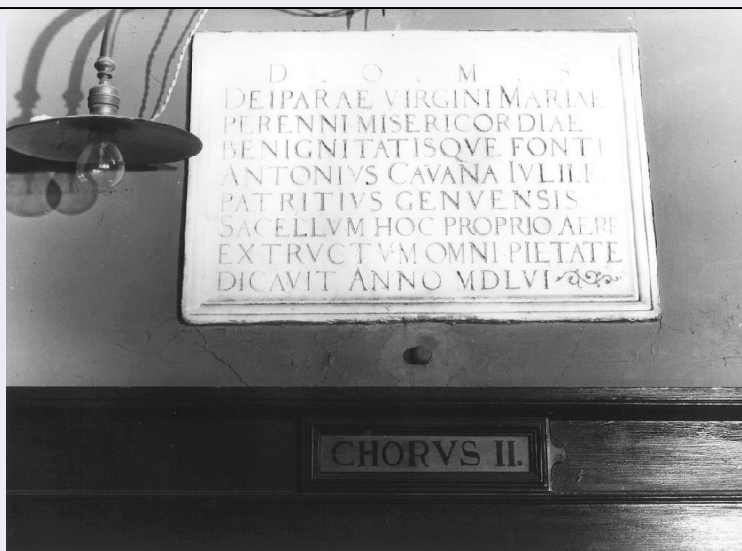 D . O . M . S
DEIPARAE VIRGINI MARIAE
PERENNI MISERICORDIAE
BENIGNITATISQVE FONTI
ANTONIVS CAVANA IVLII F
PATRITIVS GENVENSIS
SACELLVM HOC PROPRIO AERE
EXTRVCTVM OMNI PIETATE
DICAVIT ANNO MDLVI
CHORVS II.